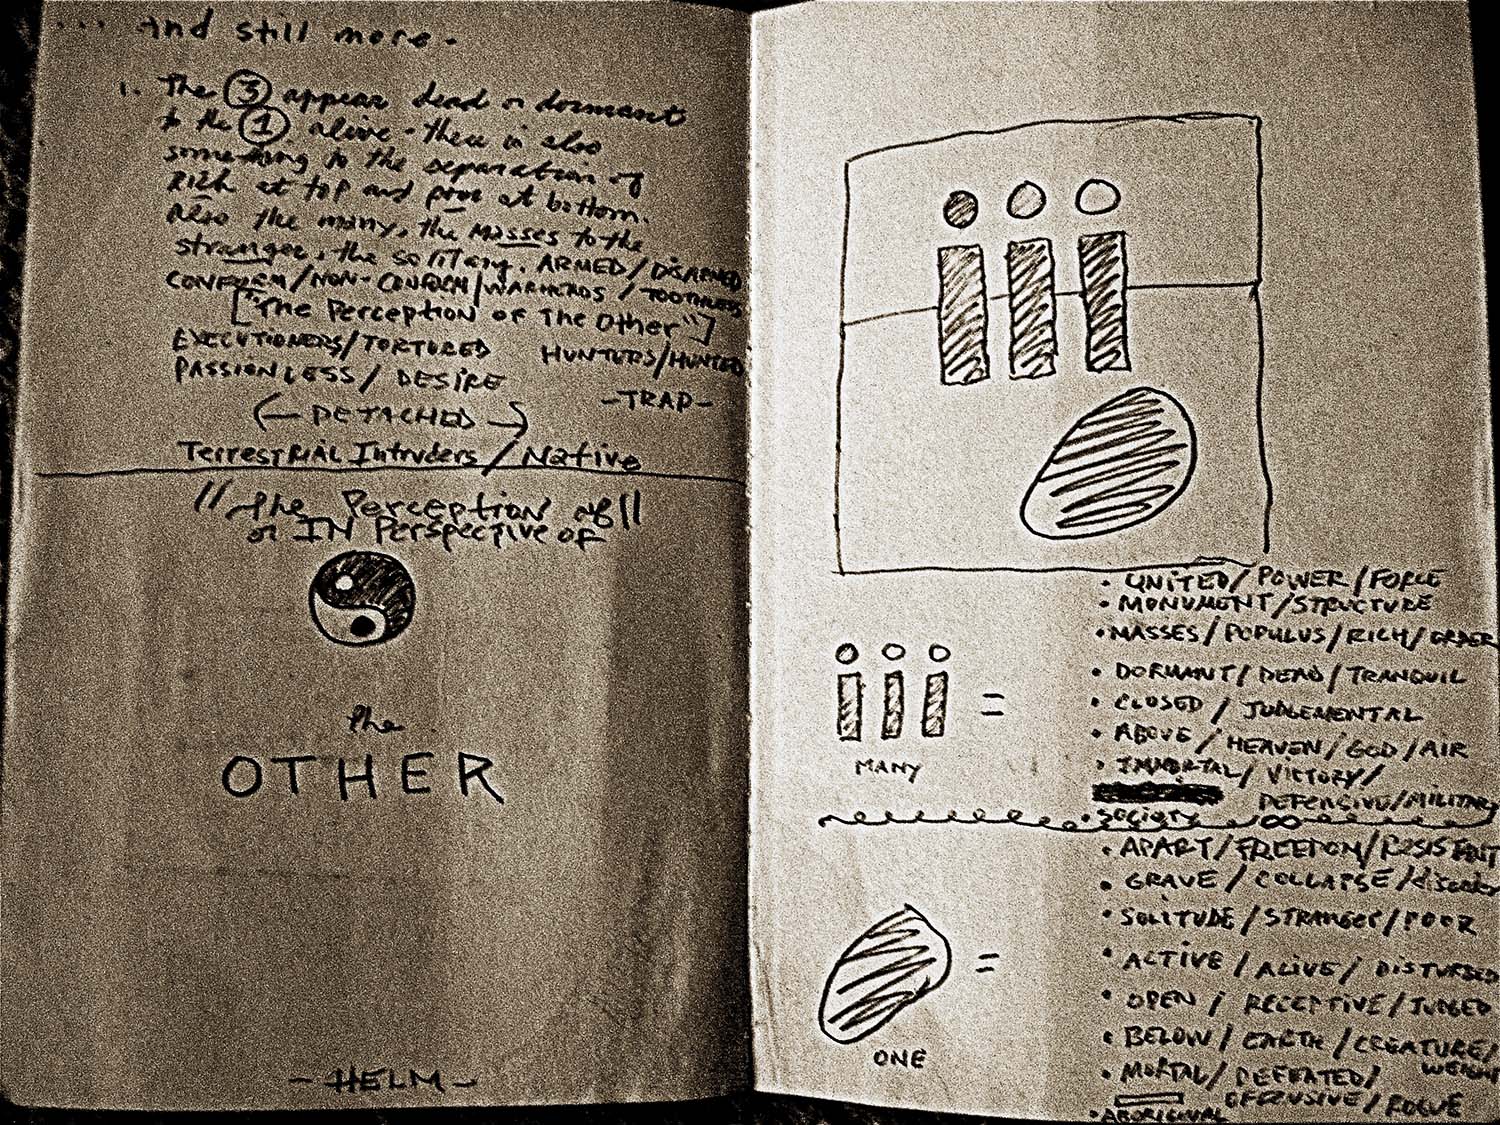 ... And still more.
1. The 3 appear dead or dormant
to the 1 alive. there is also
something to the separation of
Rich at top and poor at bottom.
Also the many, the masses to the
stranger, the solitary. ARMED/DISARMED
CONFORM/NON-CONFORM/WARHEADS/TOOTHLESS
["The Perception of The Other"]
EXECUTIONERS/TORTURED HUNTERS/HUNTED
PASSIONLESS/DESIRE
-TRAP-
← DETACHED →
Terrestrial Intruders/Native
"The Perception of"
or IN Perspective of
the
OTHER
-HELM-
• UNITED/POWER/FORCE
• MONUMENT/STRUCTURE
• MASSES/POPULUS/RICH/ORDER
• DORMANT/DEAD/TRANQUIL
• CLOSED/JUDGEMENTAL
• ABOVE/HEAVEN/GOD/AIR
• IMMORTAL/VICTORY/
DEFENSIVE/MILITARY
• SOCIETY
iii =
MANY
• APART/FREEDOM/RESISTENT
• GRAVE/COLLAPSE/disorder
• SOLITUDE/STRANGER/POOR
• ACTIVE/ALIVE/DISTURBED
• OPEN/RECEPTIVE/JUDGED
• BELOW/EARTH/CREATURE/
WEIGHT
• MORTAL/DEFEATED/
OFFENSIVE/ROGUE
• ABORIGINAL
=
ONE